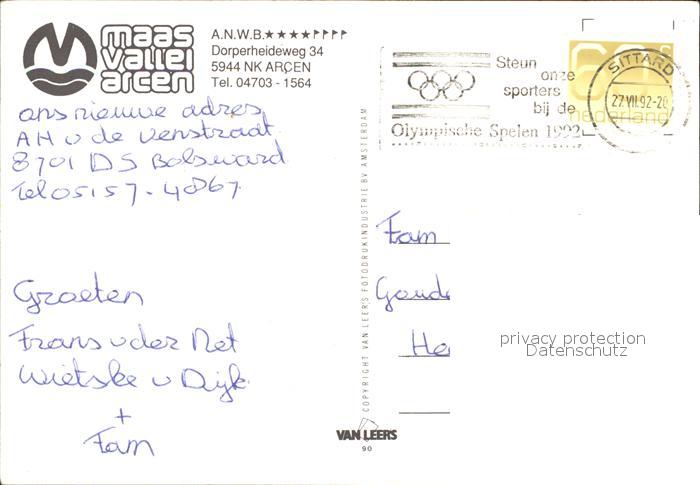 maas
vallei
arcen
A.N.W.B.★★★★
Dorperheideweg 34
5944 NK ARCEN
Tel. 04703 - 1564
ons nieuwe adres
AH v de venstraat
8701 DS Bolsward
Tel 05157-40867
Groeten
Frans v der Net
Wietske v Dijk
+
Fam
Steun
onze
sporters
bij de
Olympische Spelen 1992
SITTARD
27.VII.92-20
60c
nederland
COPYRIGHT VAN LEER'S FOTODRUKINDUSTRIE BV AMSTERDAM
Fam
Goud
He
privacy protection
Datenschutz
VAN LEER'S
90